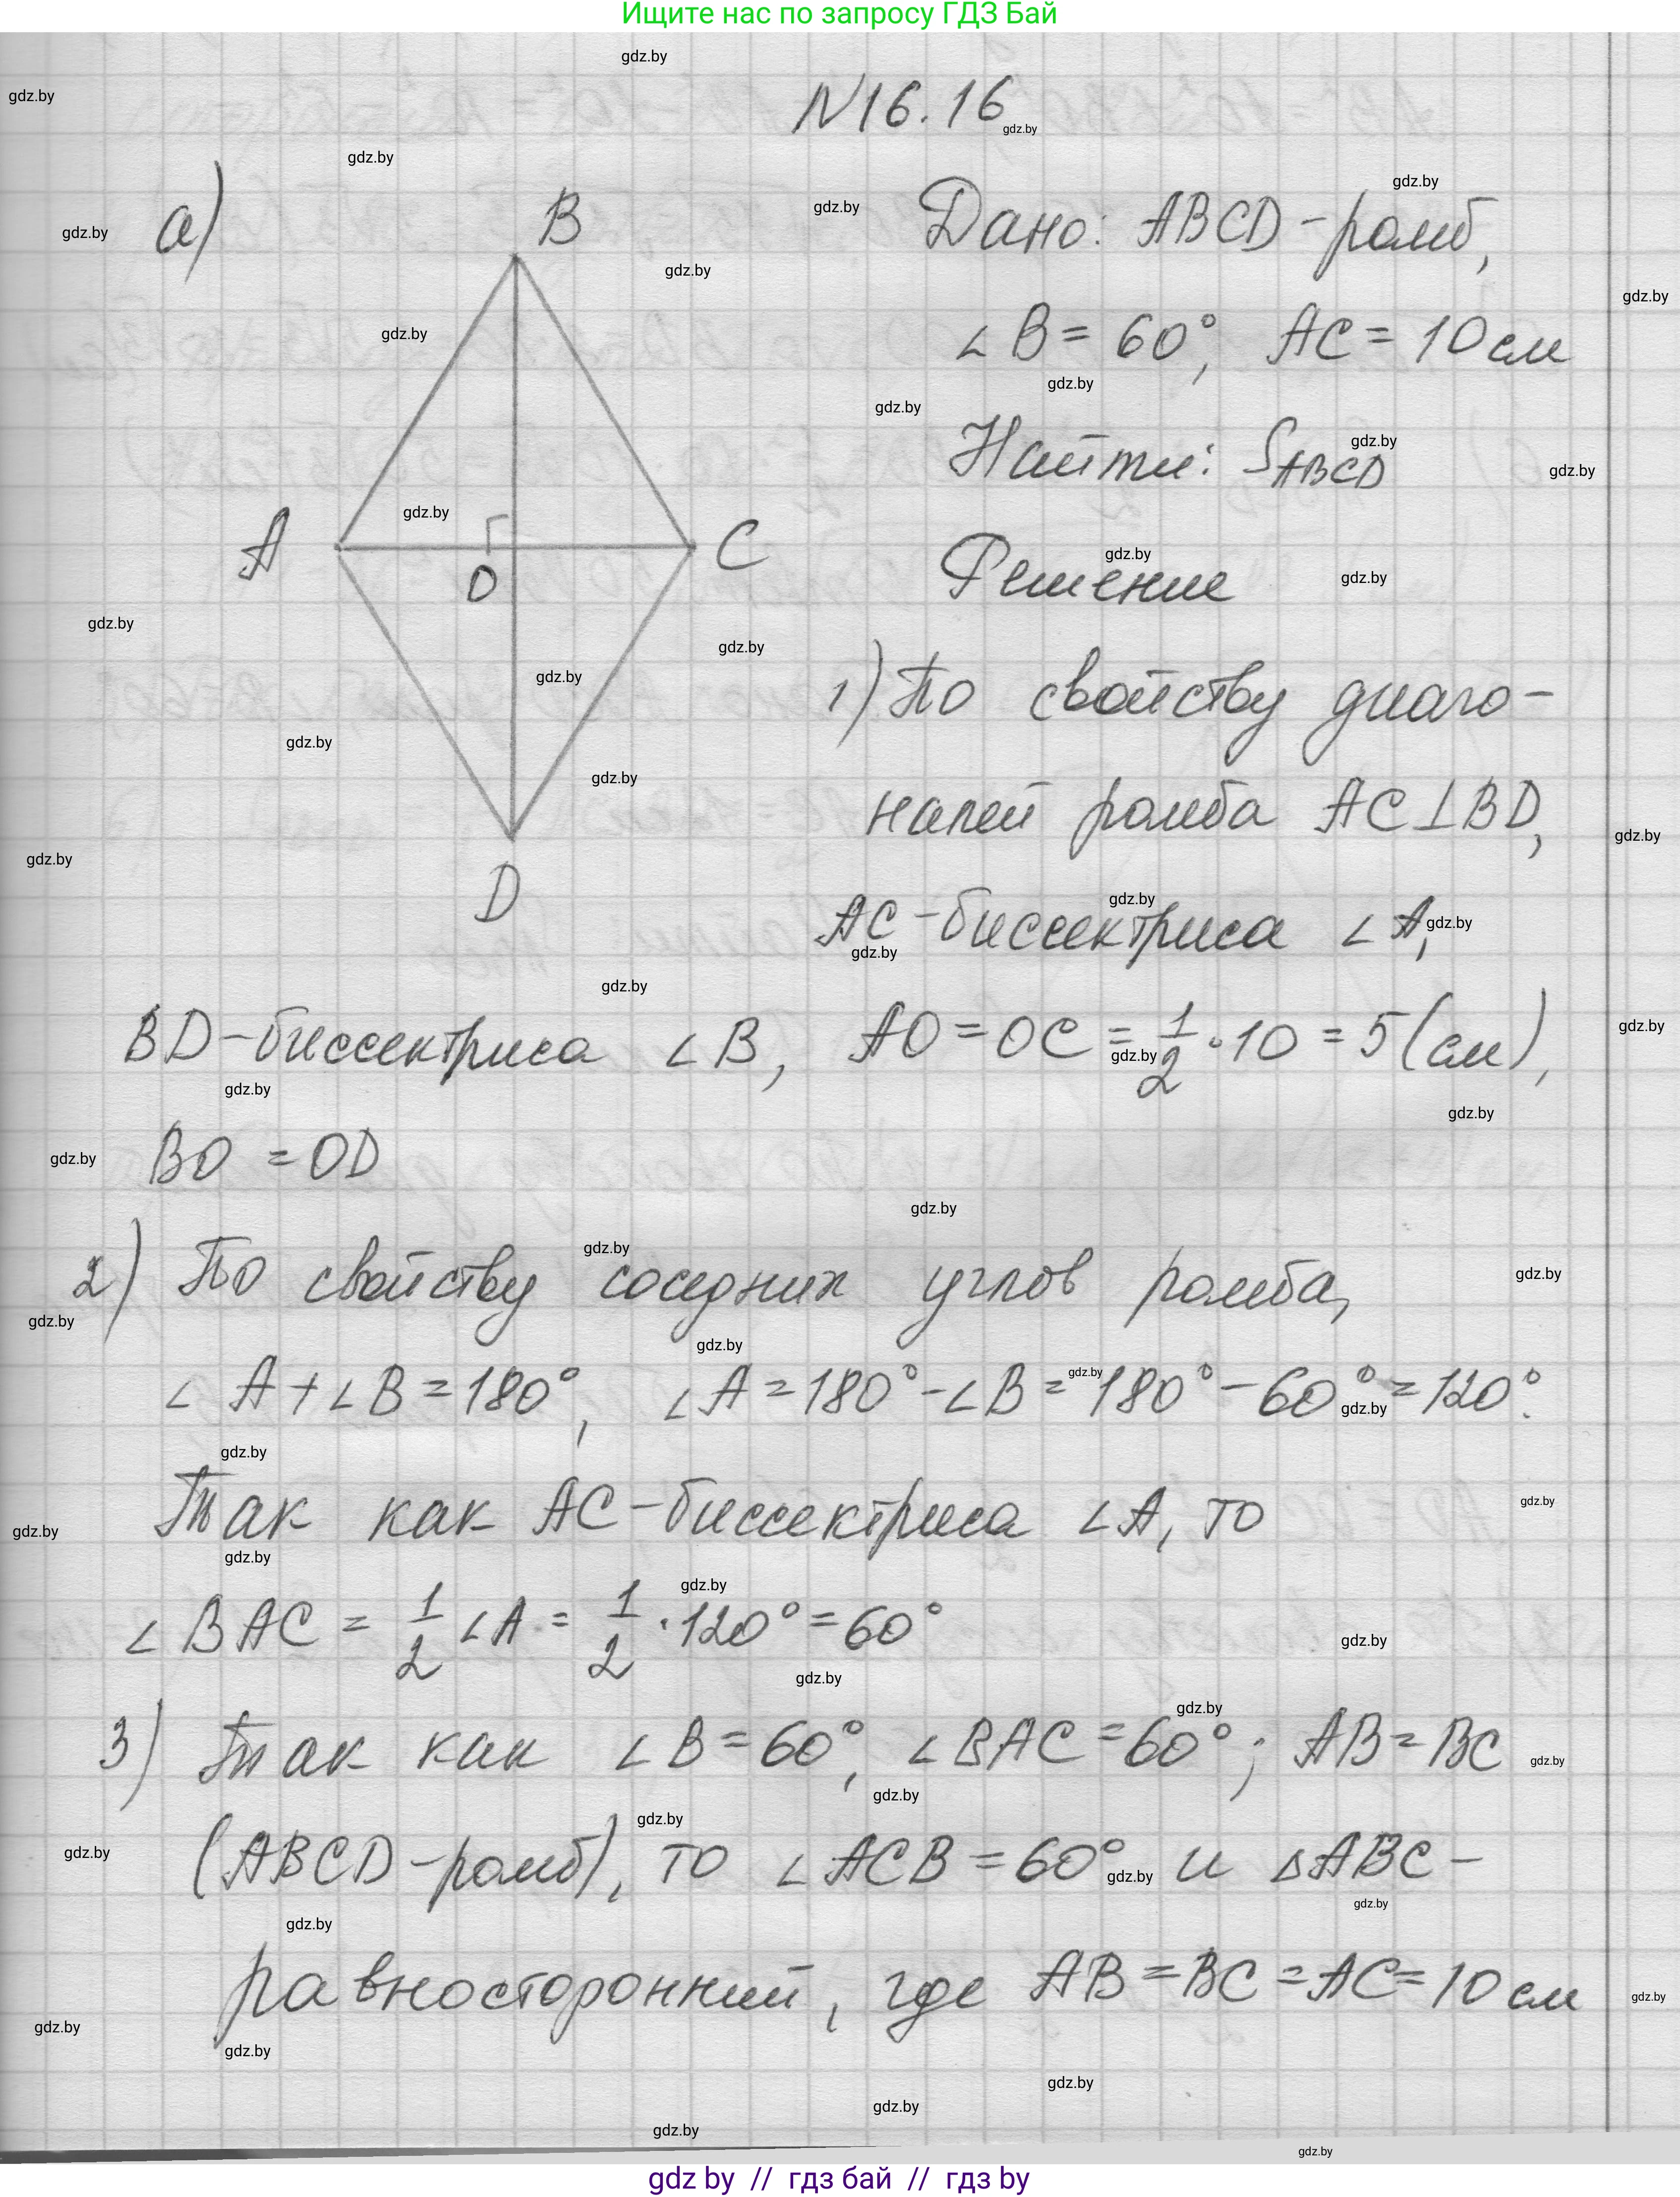 Ищите нас по запросу ГДЗ Бай
N16.16
а)
B
A
C
O
D
Дано: ABCD - ромб,
∠B = 60°, AC = 10 см
Найти: S ABCD
Решение
1) По свойству диаго-
налей ромба AC⊥BD,
AC - биссектриса ∠A,
BD - биссектриса ∠B, AO = OC = 1/2 · 10 = 5 (см),
BO = OD
2) По свойству соседних углов ромба,
∠A + ∠B = 180°, ∠A = 180° - ∠B = 180° - 60° = 120°.
Так как AC - биссектриса ∠A, то
∠BAC = 1/2 ∠A = 1/2 · 120° = 60°
3) Так как ∠B = 60°, ∠BAC = 60°; AB = BC
(ABCD - ромб), то ∠ACB = 60° и △ABC -
равносторонний, где AB = BC = AC = 10 см
gdz by // гдз бай // гдз by